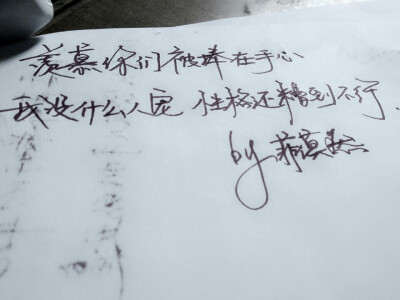 羡慕你们被捧在手心
我没什么人宠 性格还糟到不行.
by